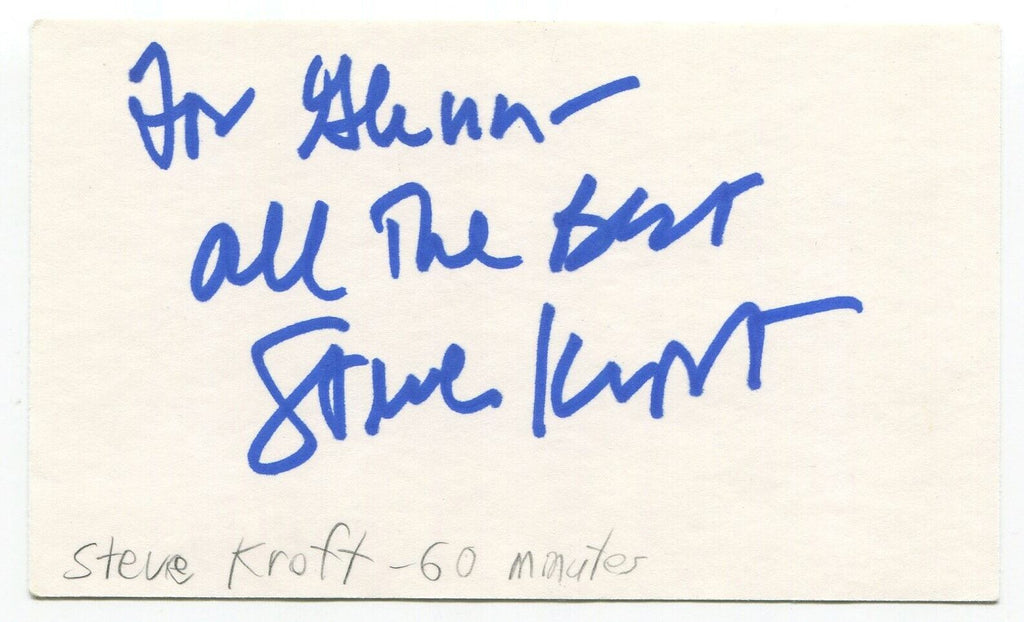 For Glenn-
all The Best
Steve Kroft
Steve Kroft - 60 minutes